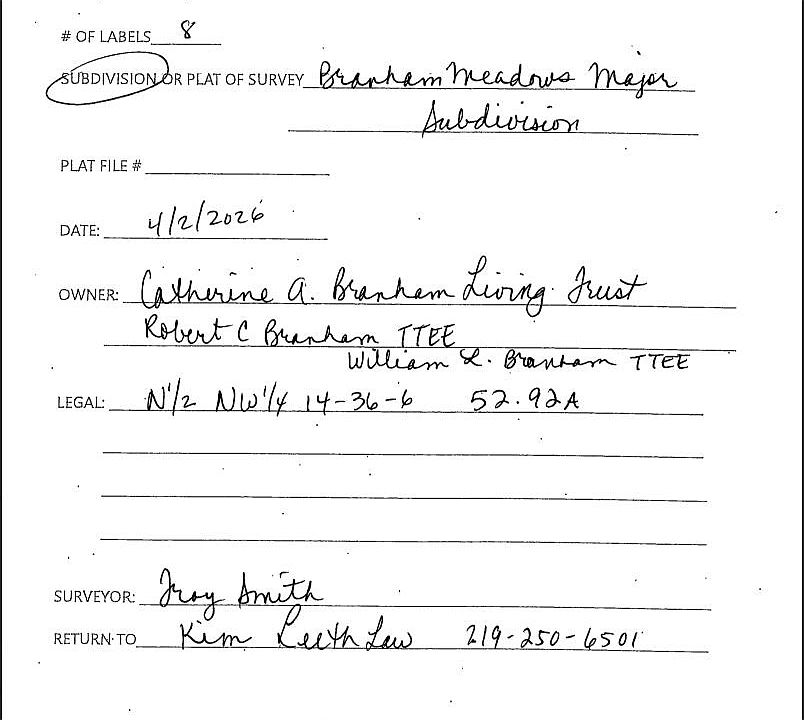 # OF LABELS 8
SUBDIVISION OR PLAT OF SURVEY Branham Meadows Major
Subdivision
PLAT FILE #
DATE: 4/2/2026
OWNER: Catherine A. Branham Living Trust
Robert C Branham TTEE
William L. Branham TTEE
LEGAL: N1/2 NW1/4 14-36-6 52.92A
SURVEYOR: Troy Smith
RETURN TO Kim Leeth Law 219-250-6501